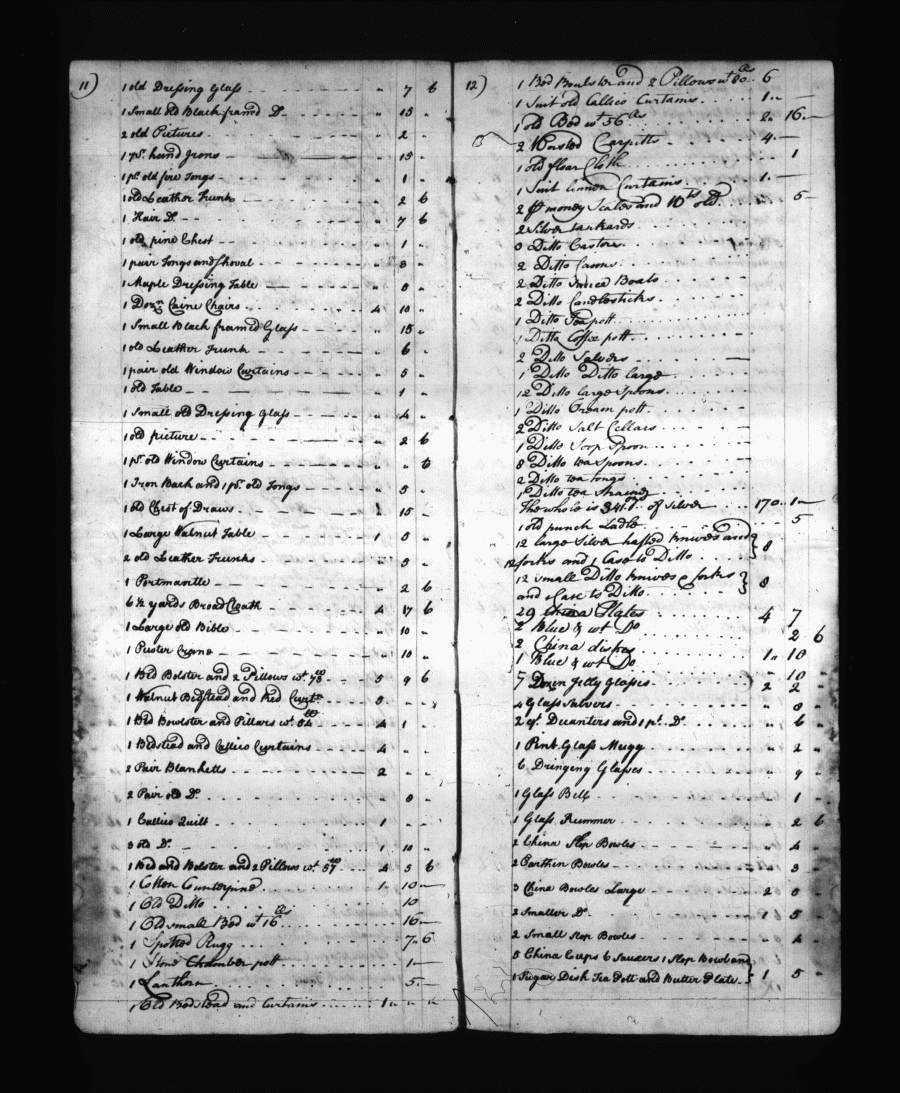 11)
1 old Dressing Glass " 7 6
1 Small old Black framd Do " 15 "
2 old Pictures " 2 "
1 pr. hand Irons " 15 "
1 pr. old fire Tongs " 1 "
1 old Leather Trunk " 2 6
1 Hair Do " 7 6
1 old pine Chest " 1 "
1 pair Tongs and Shovel " 3 "
1 Maple Dressing Table " 8 "
1 Dozn Caine Chairs 4 10 "
1 Small Black framed Glass " 15 "
1 old Leather Trunk " 6 "
1 pair old Window Curtains " 5 "
1 old Table " 1 "
1 Small old Dressing Glass " 4 "
1 old picture " 2 6
1 pr. old Window Curtains " " 6
1 Iron Back and 1 pr. old Tongs " 5 "
1 old Chest of Draws 1 15 "
1 Large Walnut Table 1 5 "
2 old Leather Trunks " 3 "
1 Portmantle " 2 6
6 1/2 yards Broad Cloath 4 17 6
1 Large old Bible " 10 "
1 Pewter Crane " 10 "
1 Bed Bolster and 2 Pillows wt. 73 5 9 6
1 Walnut Bedstead and Red Curtn 5 " "
1 Bed Bowlster and Pillars wt. 54 4 1 "
1 Bedstead and Callico Curtains 4 " "
2 Pair Blanketts 2 " "
2 Pair old Do " 8 "
1 Callico Quilt 1 " "
3 old Do 1 10 "
1 Bed and Bolster and 2 Pillow wt. 57 4 5 6
1 Cotton Counterpine 1 " 10 —
1 Old Ditto 10
1 Old small Bed wt 16 lbs 16 —
1 Spotted Rugg 7 " 6
1 Stone Chamber pott 1 —
1 Lanthorn 5 —
1 Old Bedstead and Curtains 1 " " "
12)
1 Bed Boulster and 2 Pillows wt 80 lbs 6
1 Suit old Callico Curtains 1 " —
1 old Bed wt 56 lbs 2 " 16 —
2 Worsted Carpitts 4 —
1 old floar Cloth 1
1 Suit linnen Curtains 1 —
2 pr money Scales and Wts old 5 —
2 Silver tankards
3 Ditto Castors
2 Ditto Canns
2 Ditto Sauce Boats
2 Ditto Candlesticks
1 Ditto Tea pott
1 Ditto Coffee pott
2 Ditto Salvers
1 Ditto Ditto large
12 Ditto large Spoons
1 Ditto Cream pott
2 Ditto Salt Cellars
1 Ditto Soop Spoon
8 Ditto tea Spoons
2 Ditto tea tongs
1 Ditto tea Strainer
The whole is 341 oz of Silver 170 " 1 —
1 old punch Ladle 5
12 large Silver hafted knives and
12 forks and 1 Case to Ditto } 8
12 small Ditto knives & forks
and Case to Ditto } 8
29 China Plates 4 7
2 Blue & wt Do 2 6
2 China dishes 1 " 10
1 Blue & wt Do 10 "
7 Dozn Jelly Glasses 2 2 "
4 Glass Salvers " 8 "
2 qt. Decanters and 1 pt. Do " 6 "
1 Pint Glass Mugg " 2 "
6 Dringing Glasses " 9
1 Glass Bell 1
1 Glass Rummer " 2 6
2 China Slop Bowles " 4 "
2 Earthin Bowles " 3
3 China Bowles Large 2 8 "
2 Smaller Do 1 5 "
2 Small Slop Bowles " 4 "
5 China Cups 6 Saucers 1 Slop Bowl and
1 Sugar Dish Tea Pott and Butter Plate } 1 5 "